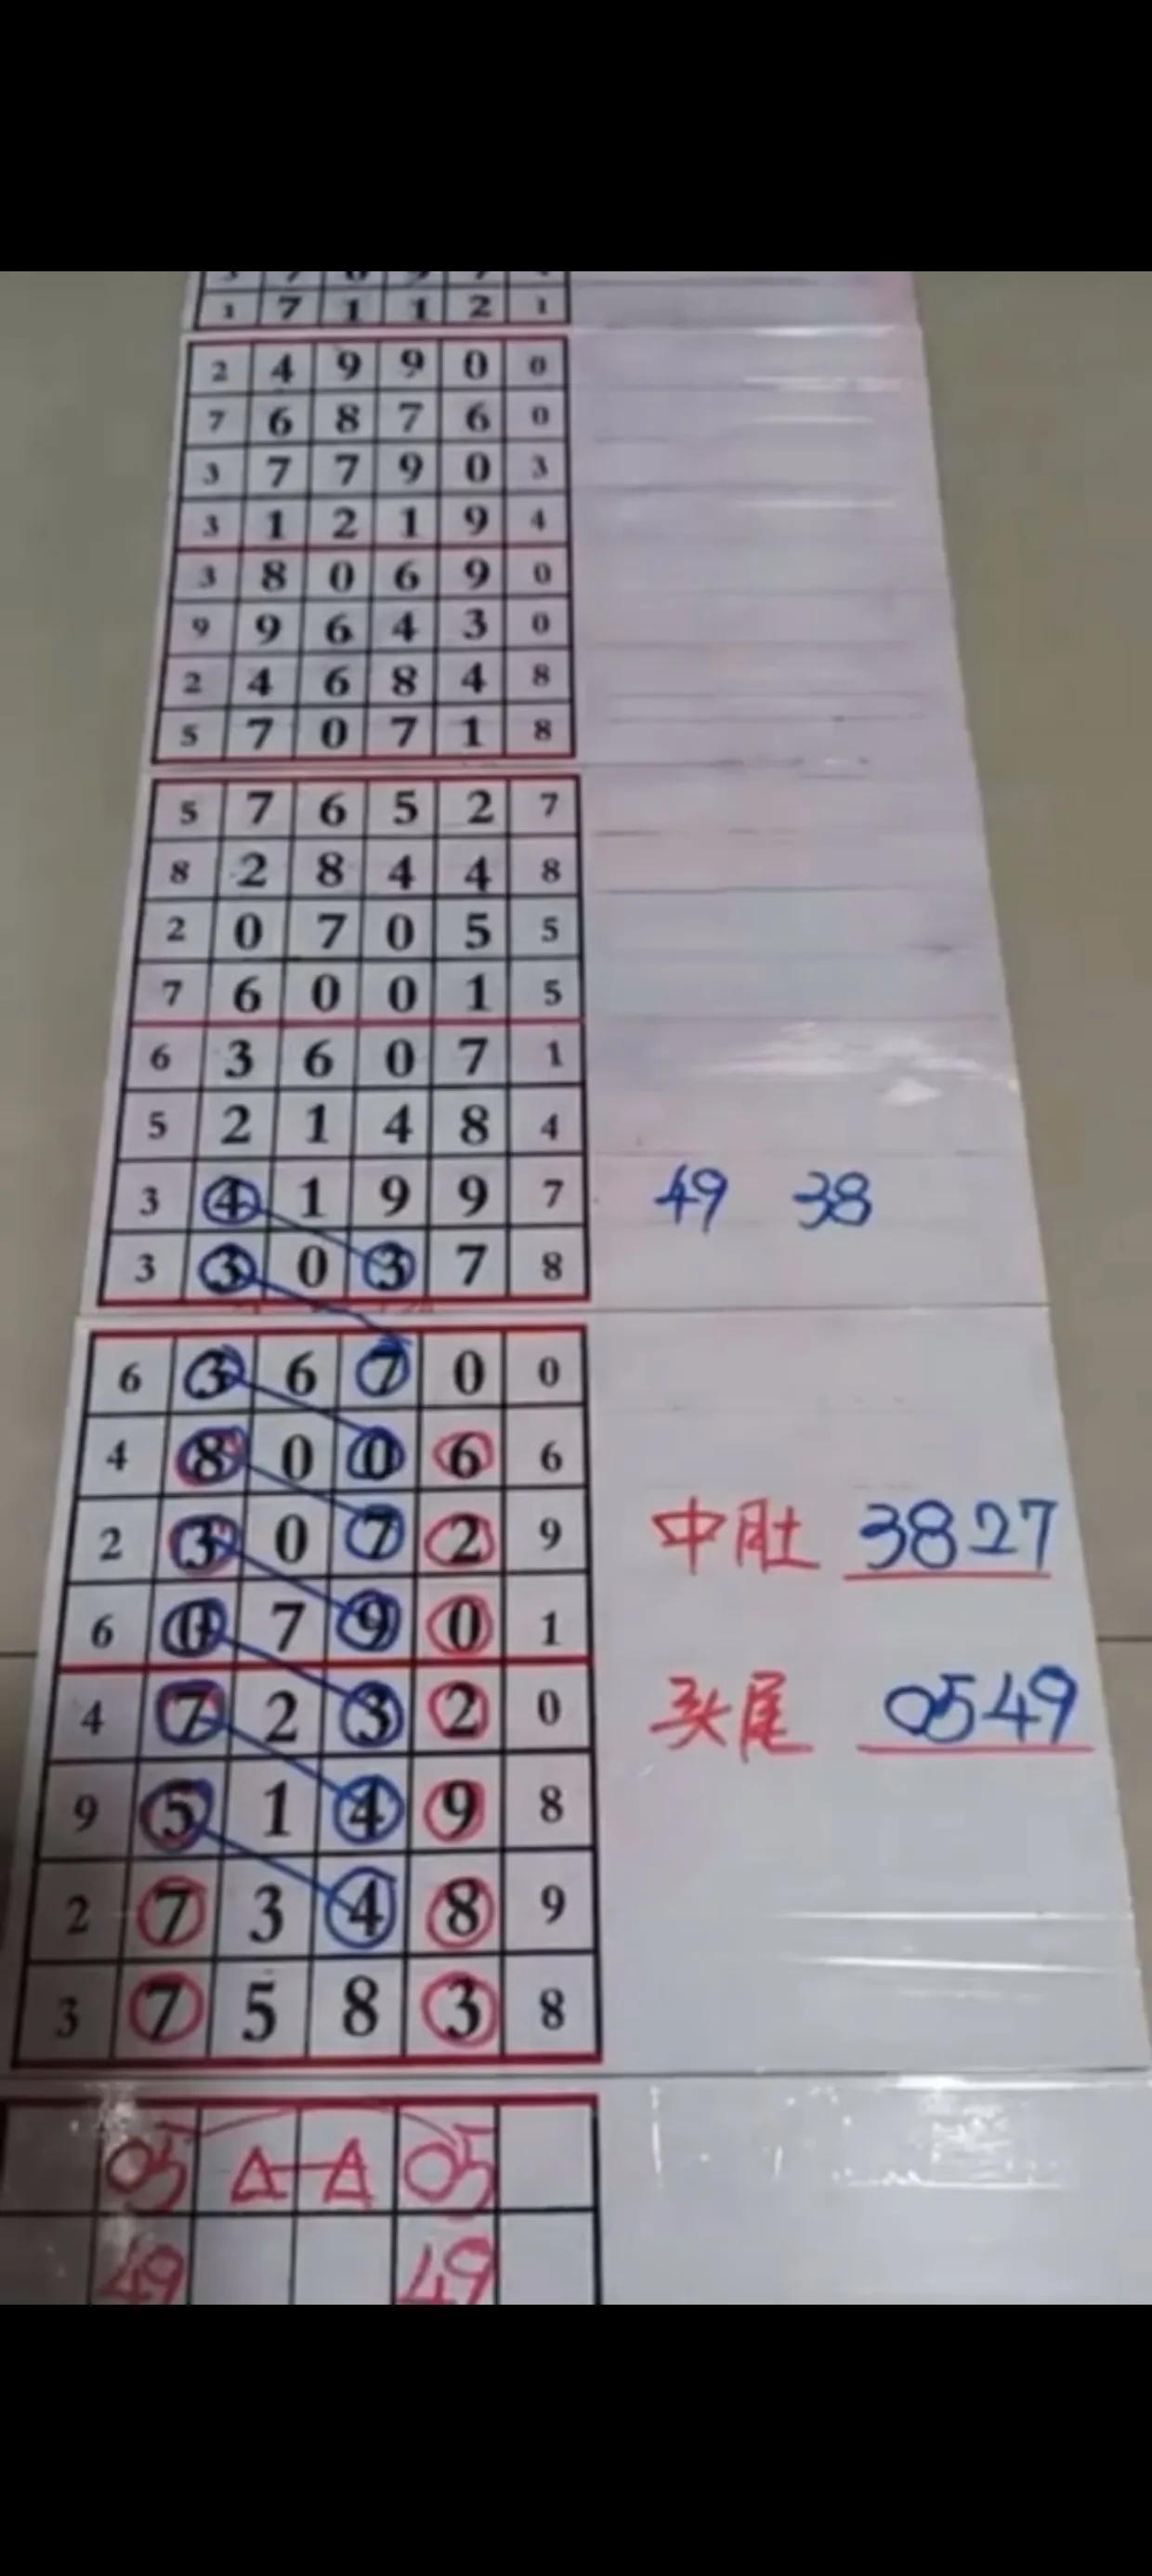 1 7 1 1 2 1
2 4 9 9 0 0
7 6 8 7 6 0
3 7 7 9 0 3
3 1 2 1 9 4
3 8 0 6 9 0
9 9 6 4 3 0
2 4 6 8 4 8
5 7 0 7 1 8
5 7 6 5 2 7
8 2 8 4 4 8
2 0 7 0 5 5
7 6 0 0 1 5
6 3 6 0 7 1
5 2 1 4 8 4
3 4 1 9 9 7 49 38
3 3 0 3 7 8
6 3 6 7 0 0
4 8 0 0 6 6
2 3 0 7 2 9 中肚 3827
6 0 7 9 0 1
4 7 2 3 2 0 头尾 0549
9 5 1 4 9 8
2 7 3 4 8 9
3 7 5 8 3 8
05 05
49 49